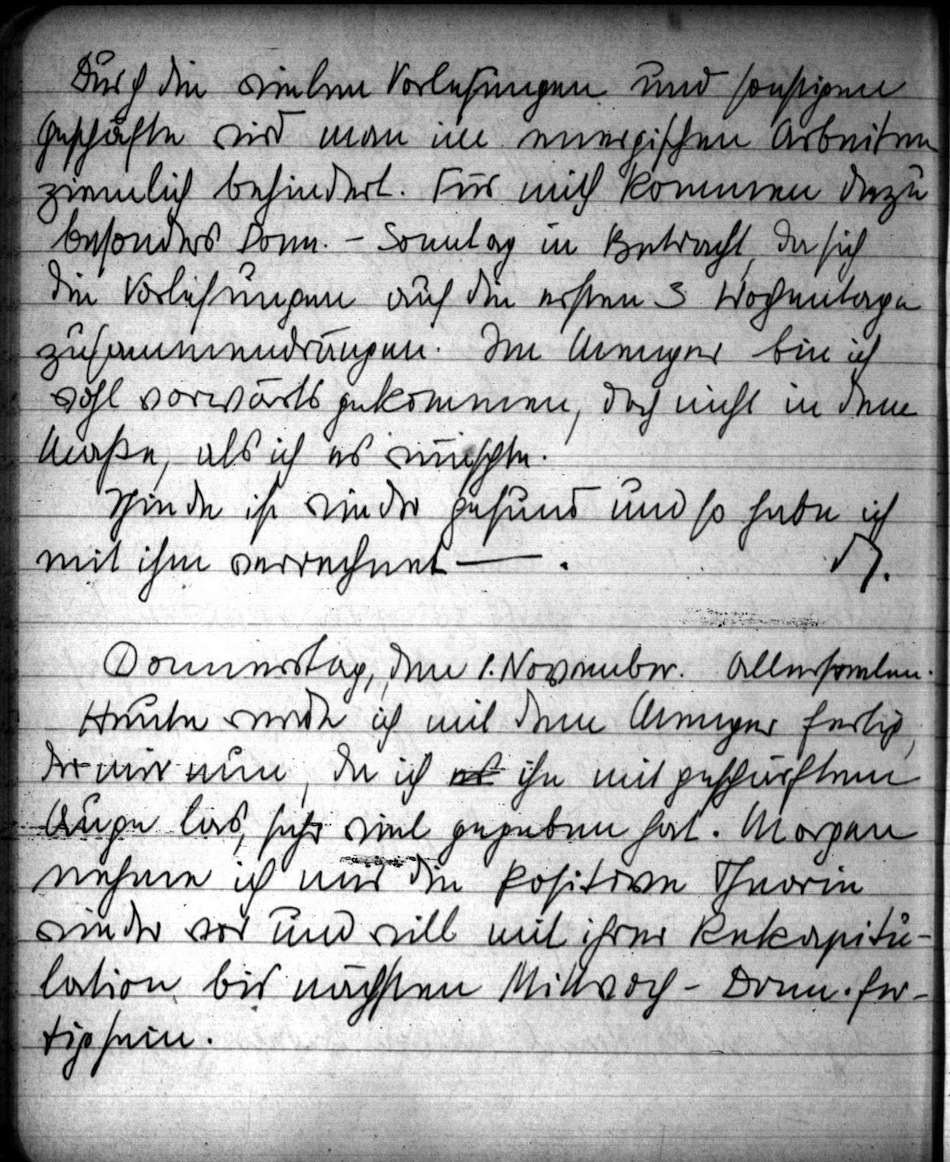 Durch die vielen Vorlesungen und sonstigen
Geschäfte wird man im energischen Arbeiten
ziemlich behindert. Für mich kommen dazu
besonders Donn. - Sonntag in Betracht, da sich
die Vorlesungen auf die ersten 3 Wochentage
zusammendrängen. Im Menger bin ich
wohl vorwärts gekommen, doch nicht in dem
Maße, als ich es wünschte.
ist wieder gesund und so habe ich
mit ihm verrechnet — .
Donnerstag, den 1. November. Allerseelen.
Heute werde ich mit dem Menger fertig,
der mir nun, da ich es ihn mit geschärftem
Auge las, sehr viel gegeben hat. Morgen
nehme ich mir die Positive Theorie
wieder vor und will mit ihrer Rekapitu-
lation bis nächsten Mittwoch - Donn. fer-
tig sein.